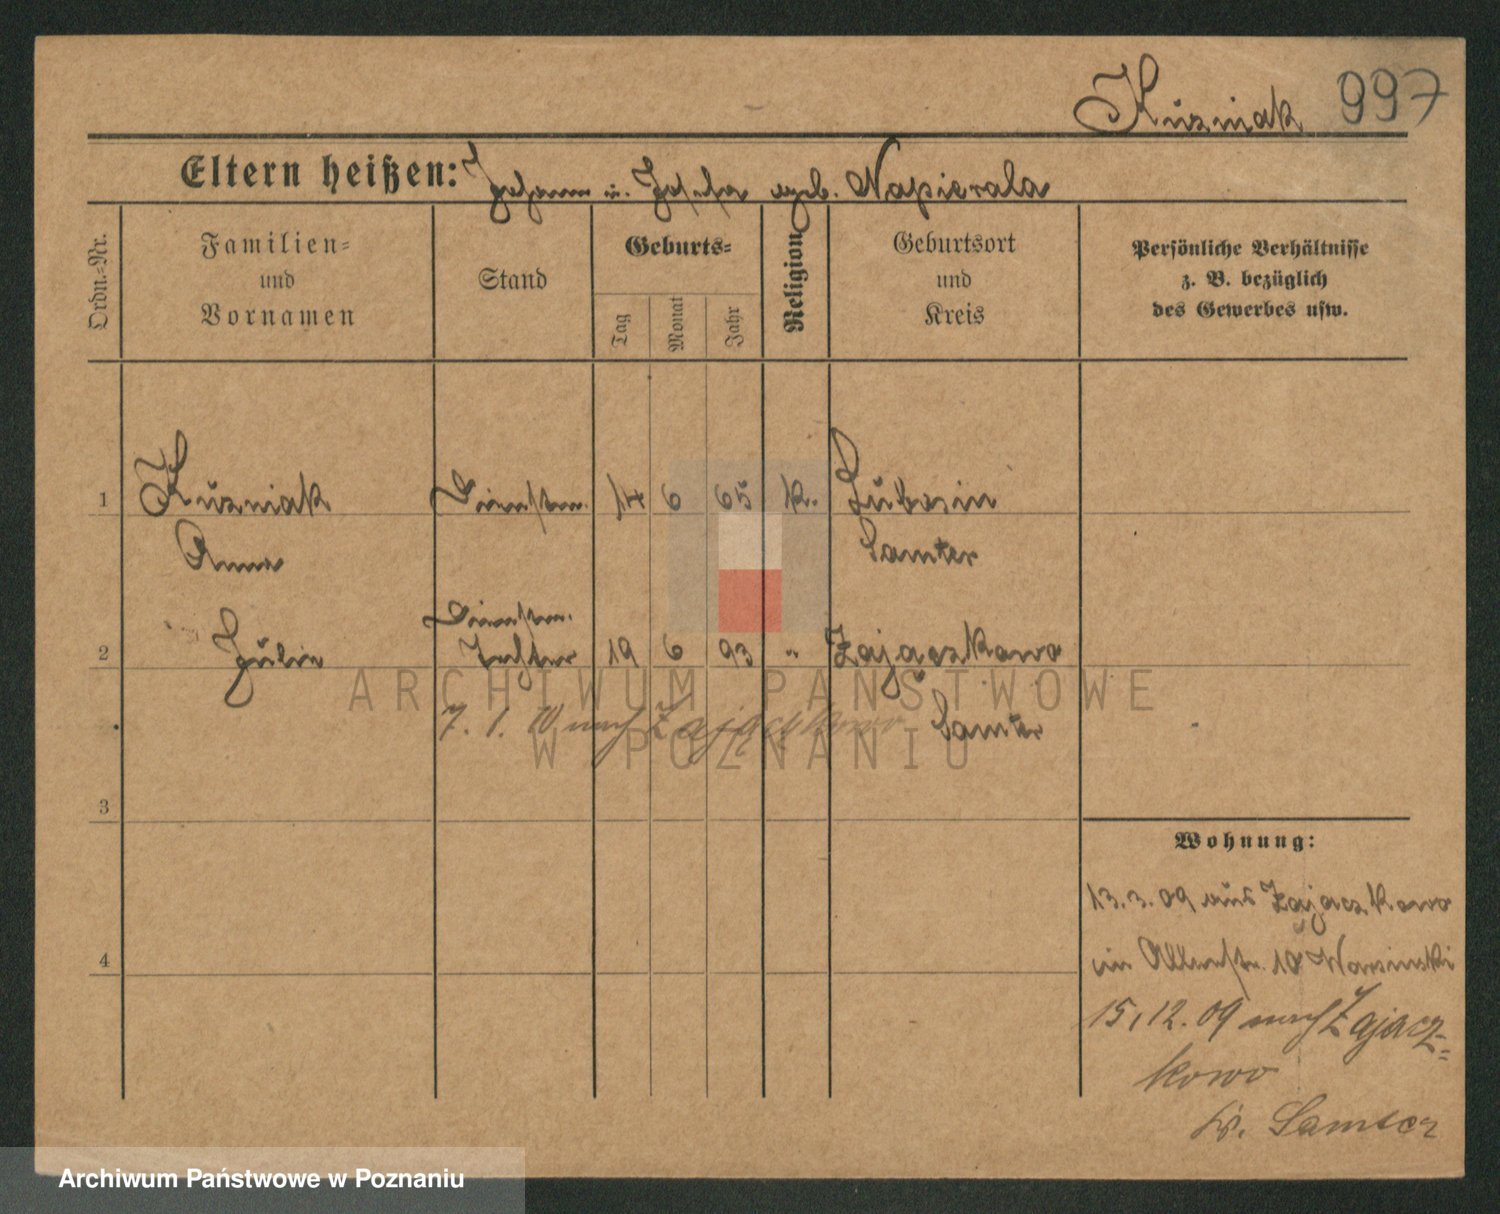 Kuzniak 997
Eltern heißen: Johann u. Josefa geb. Napierala
Ordn.-Nr.
Familien-
und
Vornamen
Stand
Geburts-
Tag
Monat
Jahr
Religion
Geburtsort
und
Kreis
Persönliche Verhältnisse
z. B. bezüglich
des Gewerbes usw.
1 Kuzniak 14 6 65 k.
Anna Samter
2 Julie Tochter 19 6 93 " Zajączkowo
7. 1. 10 nach Zajączkowo Samter
3
4
Wohnung:
13.3.09 aus Zajączkowo
in
15.12.09 nach Zającz-
kowo
Kr. Samter
ARCHIWUM PAŃSTWOWE
W POZNANIU
Archiwum Państwowe w Poznaniu